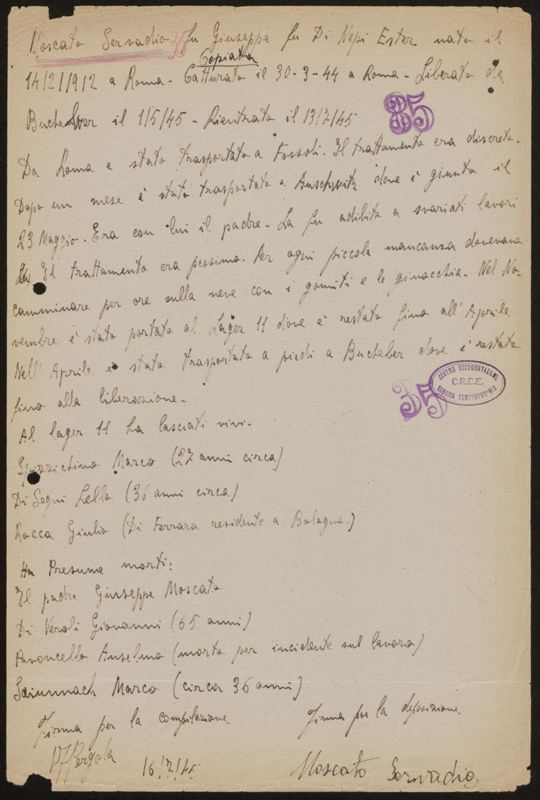 Moscato Servadio fu Giuseppe fu Di Nepi Ester nato il
Copiato
14/2/1912 a Roma - Catturato il 30-3-44 a Roma - Liberato da
il 1/5/45 - Rientrato il 13/7/45
35
Da Roma è stato trasportato a Fossoli. Il trattamento era discreto.
Dopo un mese è stato trasportato a Auschwitz dove è giunto il
23 Maggio. Era con lui il padre. La fu adibito a svariati lavori
Il trattamento era pessimo. Per ogni piccola mancanza dovevano
camminare per ore sulla neve con i gomiti e le ginocchia. Nel No-
vembre è stato portato al Lager 11 dove è restato fino all'Aprile
Nell'Aprile è stato trasportato a piedi a dove è restato
fino alla liberazione.
CENTRO DOCUMENTAZIONE
C.D.E.C.
EBRAICA CONTEMPORANEA
35
Al lager 11 ha lasciati vivi.
Marco (27 anni circa)
Di Segni Lello (36 anni circa)
Rocca Giulio (Di Ferrara residente a Bologna.)
Ha Presume morti:
Il padre Giuseppe Moscato
Di Veroli Giovanni (65 anni)
Pavoncello Anselmo (morto per incidente sul lavoro)
Marco (circa 36 anni)
Firma per la compilazione
Firma per la deposizione.
16/7/45
Moscato Servadio